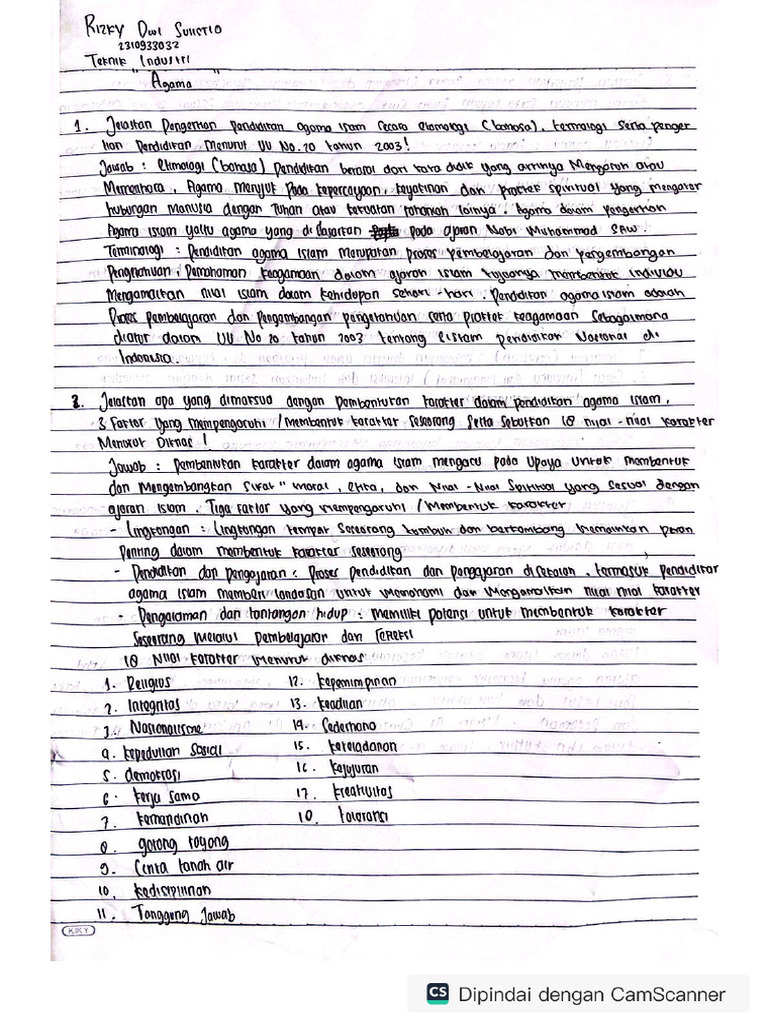 Rizky Dwi Sulistio
2310933032
Teknik Industri
"Agama"
1. Jelaskan Pengertian pendidikan agama islam secara etomologi (bahasa), termologi serta penger
tian Pendidikan Menurut UU No.20 tahun 2003!
Jawab : etimologi (bahasa) Pendidikan berasal dari kata didik yang artinya Mengasuh atau
Memelihara, Agama Merujuk Pada kepercayaan, keyakinan dan praktek spiritual yang mengatur
hubungan manusia dengan Tuhan atau kekuatan lainnya. Agama dalam pengertian
Agama islam yaitu agama yang di dasarkan pada ajaran Nabi Muhammad SAW.
Terminologi : Pendidikan agama islam merupakan proses pembelajaran dan pengembangan
Pengetahuan, Pemahaman keagamaan dalam ajaran islam tujuannya membentuk individu
Mengamalkan nilai islam dalam kehidupan sehari-hari. Pendidikan agama islam adalah
Proses pembelajaran dan pengembangan pengetahuan serta praktek keagamaan Sebagaimana
diatur dalam UU No 20 tahun 2003 tentang sistem pendidikan Nasional di
Indonesia.
2. Jelaskan apa yang dimaksud dengan pembentukan karakter dalam pendidikan agama islam,
3 faktor yang mempengaruhi/membentuk karakter seseorang serta sebutkan 18 nilai-nilai karakter
Menurut Diknas!
Jawab : pembentukan karakter dalam agama islam mengacu pada Upaya untuk membentuk
dan Mengembangkan sifat" moral, etika, dan Nilai-Nilai Spiritual yang sesuai dengan
ajaran islam. Tiga faktor yang mempengaruhi/Membentuk karakter
- Lingkungan : Lingkungan tempat seseorang tumbuh dan berkembang memainkan peran
Penting dalam membentuk karakter seseorang
- Pendidikan dan pengajaran : Proses pendidikan dan pengajaran di sekolah, termasuk pendidikan
agama islam memberi landasan untuk memahami dan Mengamalkan nilai nilai karakter
- Pengalaman dan tantangan hidup : memiliki potensi untuk membentuk karakter
Seseorang melalui pembelajar dan refleksi
18 Nilai karakter menurut diknas
1. Religius
2. Integritas
3. Nasionalisme
4. kepedulian Sosial
5. demokrasi
6. kerja sama
7. kemandirian
8. gotong royong
9. Cinta tanah air
10. kedisiplinan
11. Tanggung Jawab
12. kepemimpinan
13. keadilan
14. Sederhana
15. keteladanan
16. kejujuran
17. kreativitas
18. toleransi
KIKY
CS Dipindai dengan CamScanner